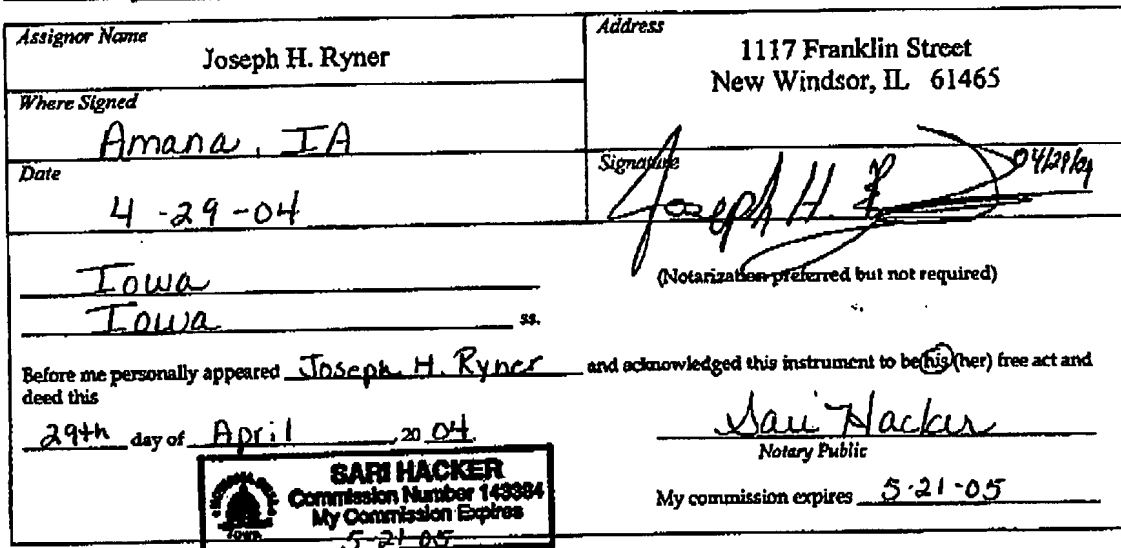 Assignor Name
Joseph H. Ryner
Address
1117 Franklin Street
New Windsor, IL 61465
Where Signed
Amana, IA
Date
4-29-04
Signature
Joseph H. 04/29/04
Iowa
(Notarization preferred but not required)
Iowa ss.
Before me personally appeared Joseph H. Ryner and acknowledged this instrument to be (his) (her) free act and
deed this
29th day of April, 20 04
Sari Hacker
Notary Public
SARI HACKER
Commission Number 143384
My Commission Expires
5-21-05
IOWA
My commission expires 5-21-05